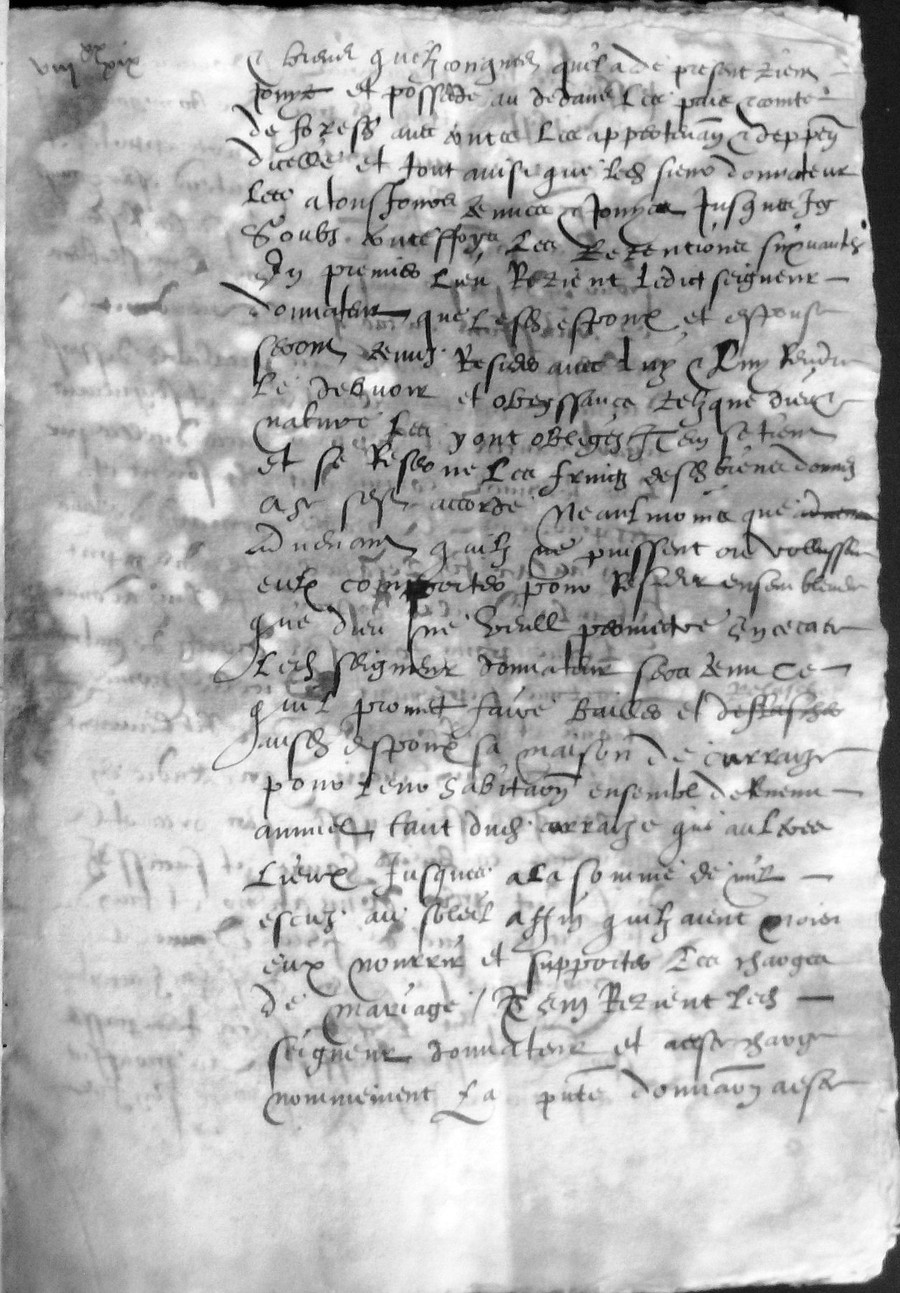 viii xx xix
& biens quelzconques quil a de present tient
jouyt et possede au dedans les pais & comte
de forestz avec toutes les appartenan & deppen
dicelle et tout ainsi que led sieur donnateur
les a tousjours tenues & jouyes jusques icy
Soubz touteffoys les retentions suyvantes
En premier lieu retient ledict seigneur
donnateur que lesd espoux et espouse
seront tenuz resider avec luy & luy rendre
le debvoir et obeyssance telz que dieu &
nature les y ont obligez Item se retient
et se reserve les fruictz desd biens donnez
Neaulmoins que
advenant quilz ne puissent ou voulussent
eulx comporter pour resider ensemblement
que dieu ne veulle permettre en ce cas
led seigneur donnateur sera tenu ce
quil promet faire bailler et
ausd espoux sa maison de curraize
pour leur habitaon ensemble de revenu
annuel tant dud curraize que aultres
lieux jusques a la somme de
escuz au soleil affin quilz aient moien
eux nourrir et supporter les charges
de mariage / Item retient led
seigneur donnateur et a ceste charge
nommement la pnte donnaon a este